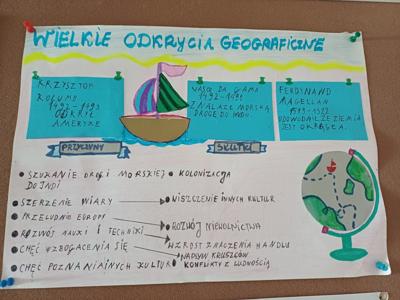 WIELKIE ODKRYCIA GEOGRAFICZNE
KRZYSZTOF
KOLUMB
1492-1493
ODKRYŁ
AMERYKE
VASCO DA GAMA
ZNALAZŁ MORSKĄ
DROGĘ DO INDII
FERDYNAND
MAGELLAN
UDOWODNIŁ ŻE ZIEMIA
JEST OKRĄGŁA.
PRZYCZYNY
SKUTKI
• SZUKANIE DROGI MORSKIEJ
DO INDI
• SZERZENIE WIARY
• PRZELUDNIENIE EUROPY
• ROZWÓJ NAUKI I TECHNIKI
• CHĘĆ WZBOGACENIA SIĘ
• CHĘĆ POZNANIA INNYCH KULTUR
• KOLONIZACJA
• NISZCZENIE INNYCH KULTUR
• ROZWÓJ NIEWOLNICTWA
WZROST ZNACZENIA HANDLU
NAPŁYW KRUSZCÓW
• KONFLIKTY Z LUDNOŚCIĄ